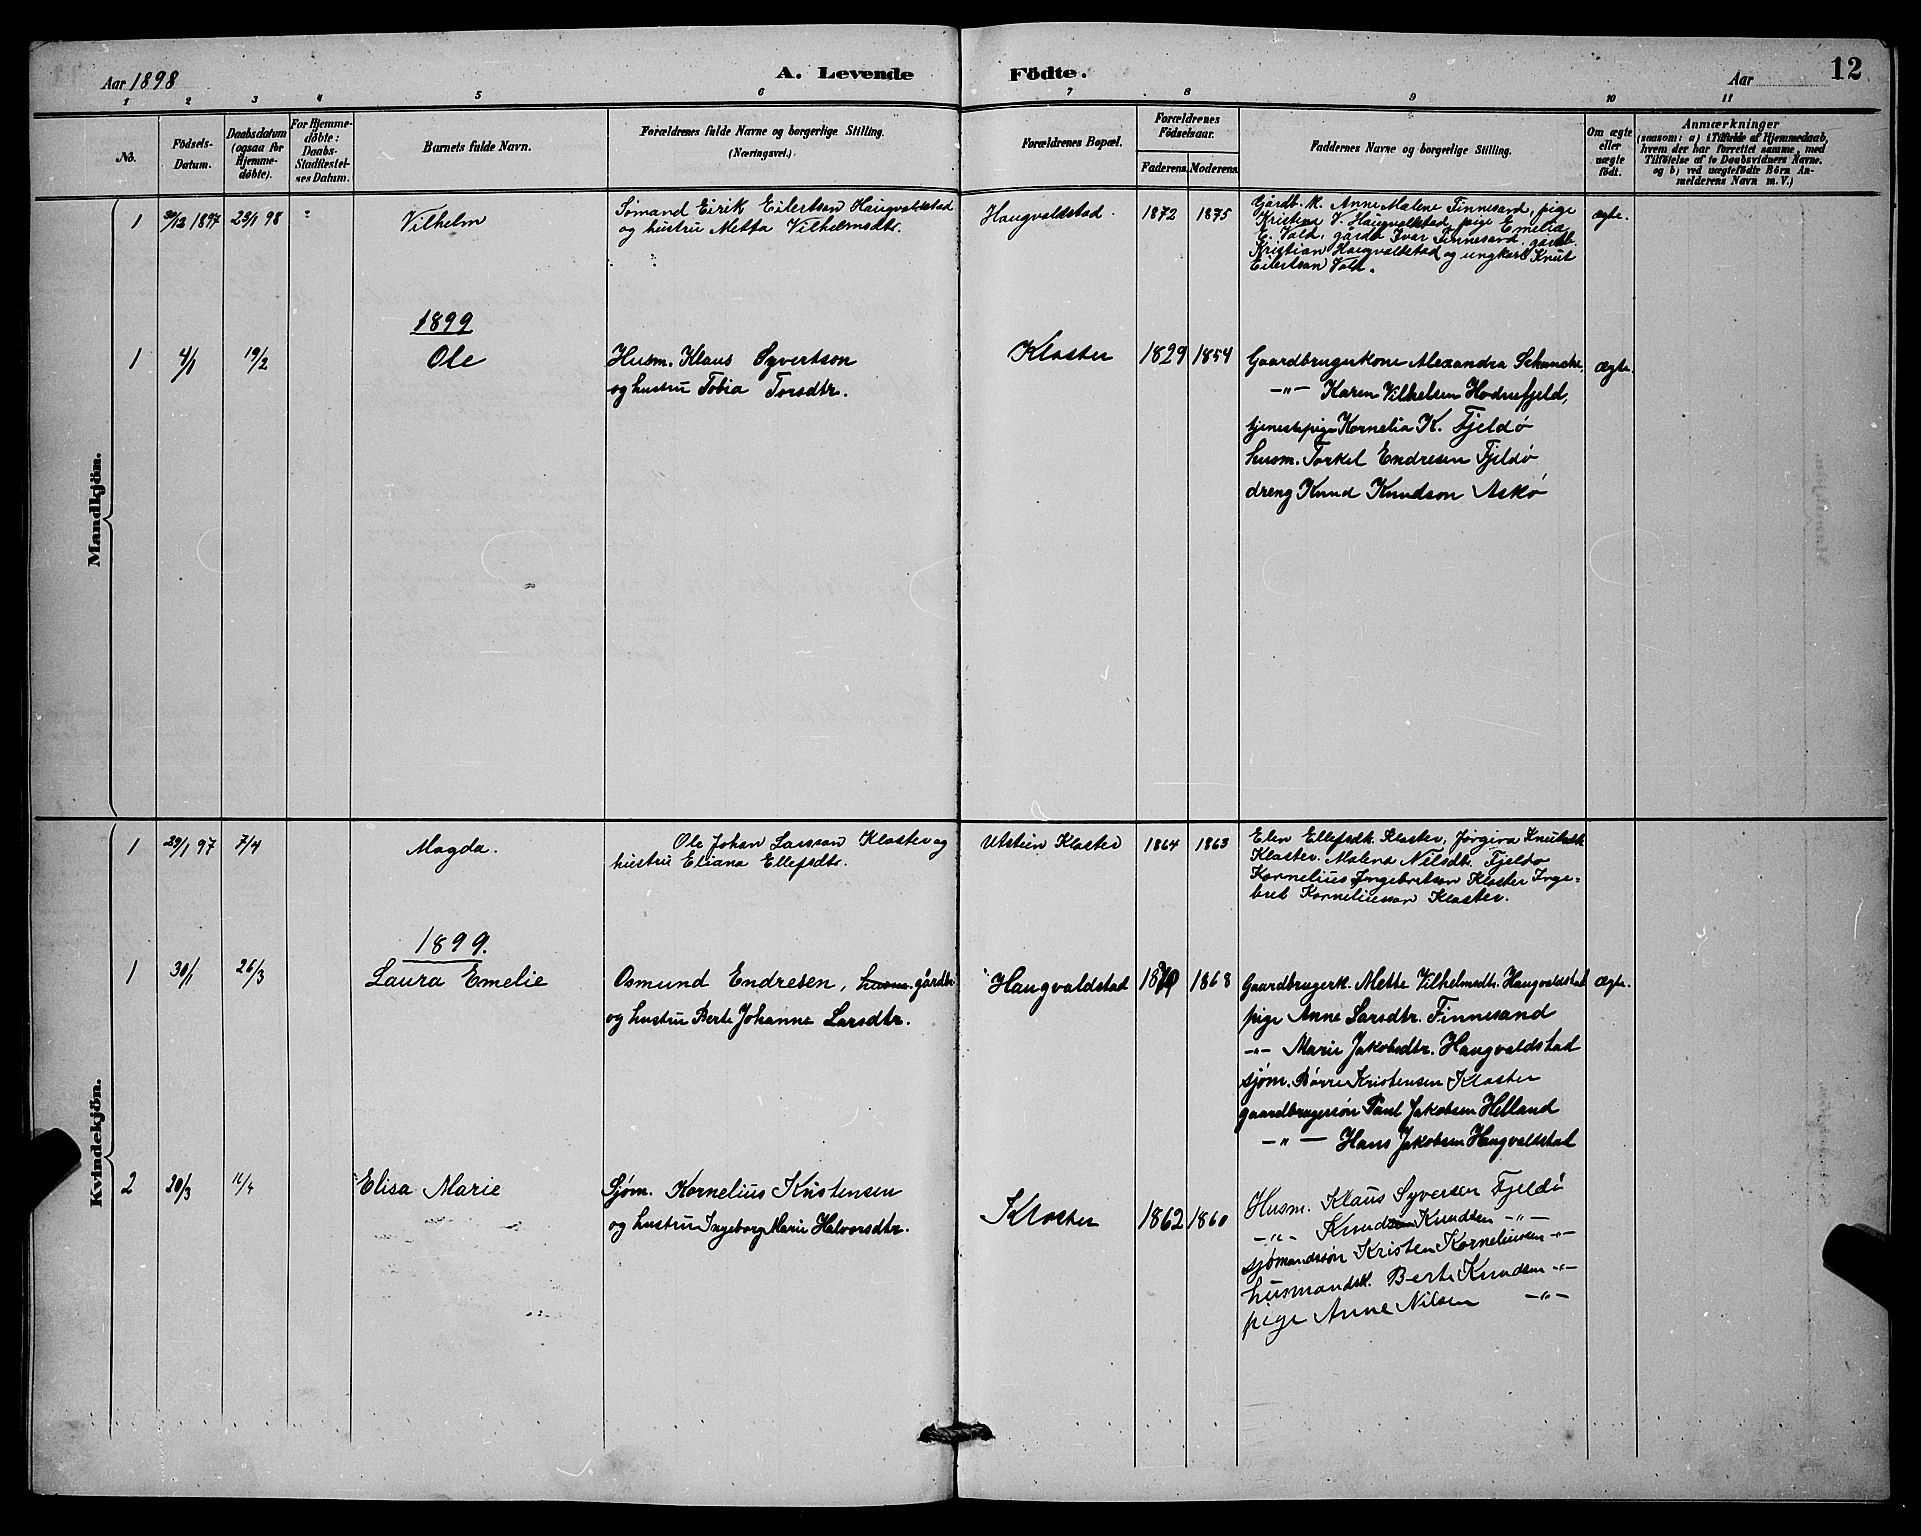 Aar 1898
A. Levende Födte.
Aar
12
1 2 3 4 5 6 7 8 9 10 11
No.
Födsels-Datum.
Daabsdatum (ogsaa for Hjemmedöbte).
For Hjemmedöbte: Daabs-Stadfæstelses Datum.
Barnets fulde Navn.
Forældrenes fulde Navne og borgerlige Stilling. (Næringsvei.)
Forældrenes Bopæl.
Forældrenes Födselsaar.
Faderens Moderens
Faddernes Navne og borgerlige Stilling.
Om ægte eller uægte födt.
Anmærkninger
(saasom: a) i Tilfælde af Hjemmedaab,
hvem der har forrettet samme, med
Tilföielse af to Daabsvidners Navne.
og b) ved uægtefödte Börn Anmelderens Navn m. V.)
Mandkjön.
1 30/12 1897 23/1 98 " Vilhelm
Sømand Eirik Eilertsen Haugvaldstad
og hustru Metta Vilhelmsdtr.
Haugvaldstad. 1872 1875
Gårdb. k. Anne Malene Finnesand, pige
Kristine V. Haugvaldstad, pige Emelia
E. Vold, gårdb Ivar Finnesand, gårdb.
Kristian Haugvaldstad og ungkarl Knut
Eilertsen Vold.
ægte.
1899
1 4/1 19/2 Ole
Husm. Klaus Syvertson
og hustru Tobia Torsdtr.
Kloster 1829 1854
Gaardbrugerkone Alexandra Schancke,
—"— Karen Vilhelsen Hodnefjeld,
tjenestepige Kornelia K. Fjeldø
husm. Torkel Endresen Fjeldø
dreng Knud Knudson Askø
ægte.
Kvindekjön.
1 29/1 97 7/4 Magda.
Ole Johan Larsson Kloster og
hustru Eliana Ellefsdtr.
Utstein Kloster 1864 1863
Elen Ellefsdtr. Kloster, Jørgina Knutsdtr
Kloster. Malena Nilsdtr. Fjeldø
Kornelius Ingebretson Kloster Inge-
bret Korneliusson Kloster.
1899.
1 30/1 26/3 Laura Emelie
Osmund Endresen, husm. gårdbr
og hustru Berte Johanne Larsdtr.
Haugvaldstad 1870 1868
Gaardbrugerk. Mette Vilhelmsdtr. Haugvaldstad
pige Anne Larsdtr. Finnesand
—"— Marie Jakobsdtr. Haugvaldstad
sjøm. Børre Kristensen Kloster
gaardbrugersøn Paul Jakobsen Helland
—"— Hans Jakobsen Haugvaldstad
ægte.
2 20/3 16/4 Elisa Marie
Sjøm. Kornelius Kristensen
og hustru Ingeborg Marie Halvorsdtr.
Kloster 1862 1860
Husm. Klaus Syversen Fjeldø
—"— Knud Knudsen —"—
sjømandssøn Kristen Korneliussen —"—
husmandsk. Berte Knudsen —"—
pige Anne Nilsen —"—